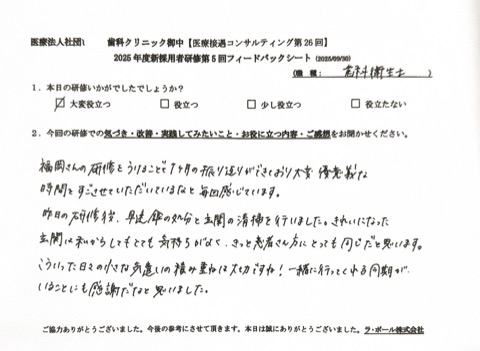 医療法人社団 歯科クリニック御中【医療接遇コンサルティング第26回】
2025年度新採用者研修第5回フィードバックシート(2025/09/30)
(職 種: 歯科衛生士 )
1．本日の研修いかがでしたでしょうか?
☑ 大変役立つ □ 役立つ □ 少し役立つ □ 役立たない
2．今回の研修での気づき・改善・実践してみたいこと・お役に立つ内容・ご感想をお聞かせください。
福岡さんの研修をうけることで1ヶ月の振り返りができており大変有意義な
時間をすごさせていただいているなと毎回感じています。
昨日の研修後、早速傘の処分と玄関の清掃を行いました。きれいになった
玄関は私からしてもとても気持ちがよく、きっと患者さん方にとっても同じだと思います。
こういった日々の小さな気遣いの積み重ねは大切ですね！一緒に行ってくれる同期が
いることにも感謝だなと思いました。
ご協力ありがとうございました。今後の参考にさせて頂きます。本日は誠にありがとうございました。ラ・ポール株式会社